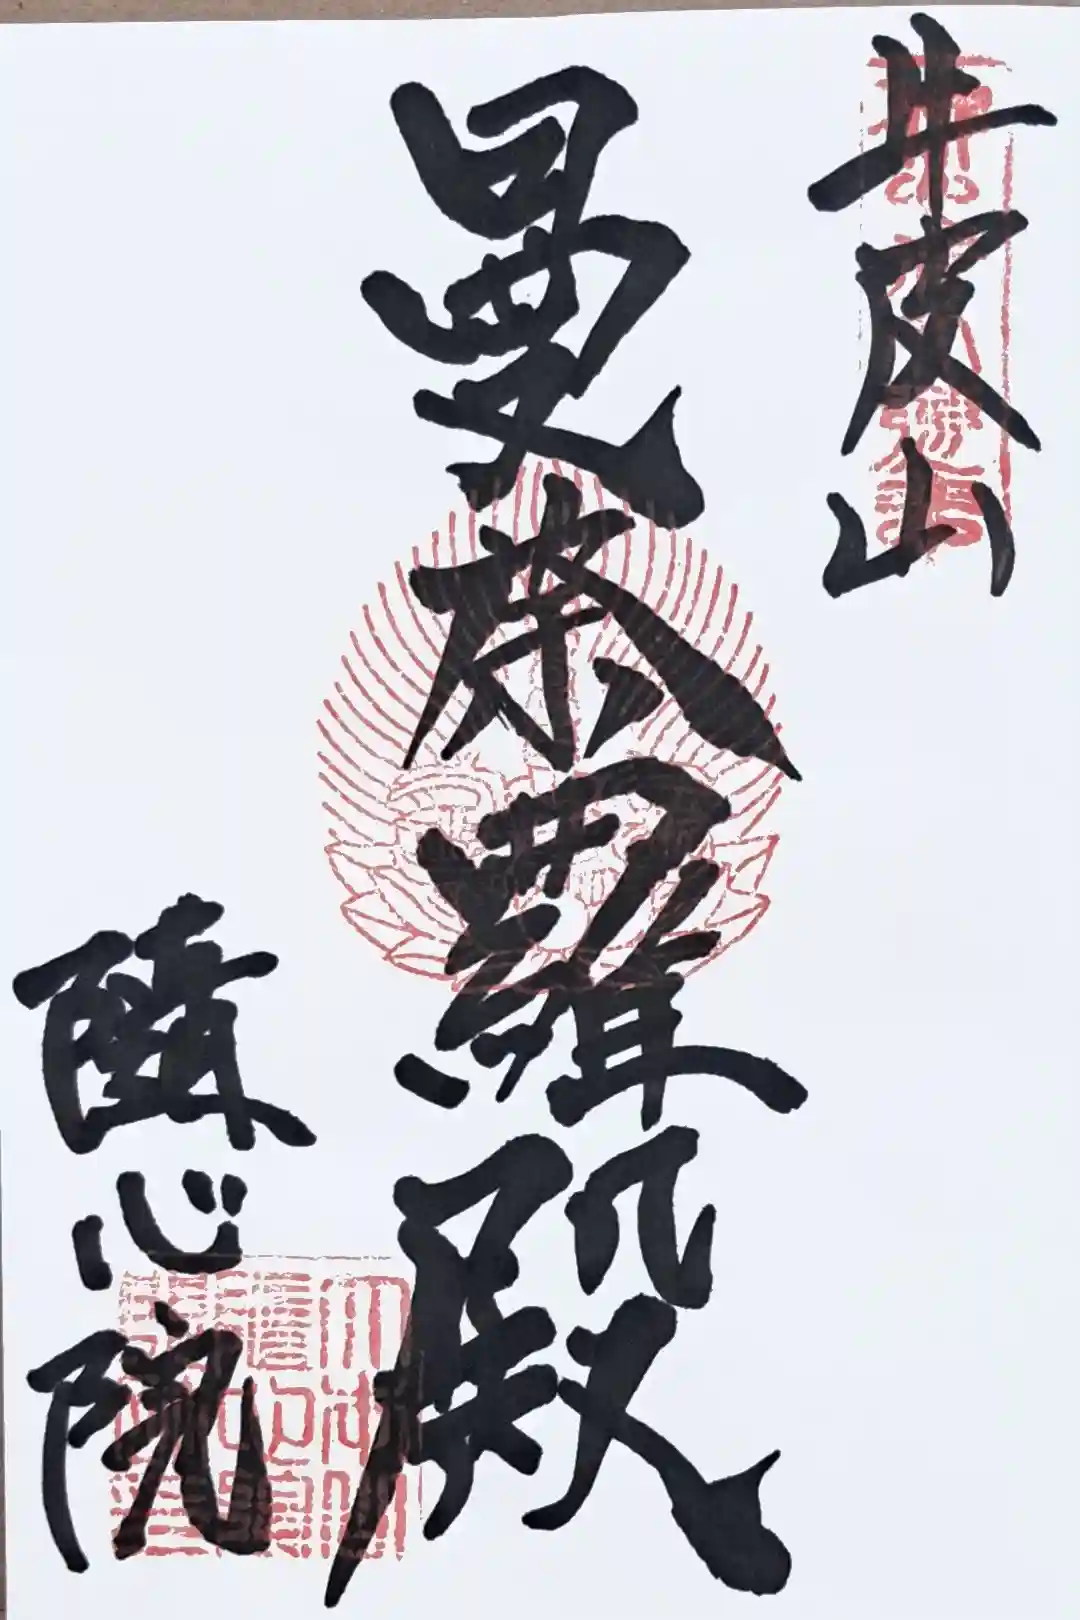 牛皮山
曼荼羅殿
随心院